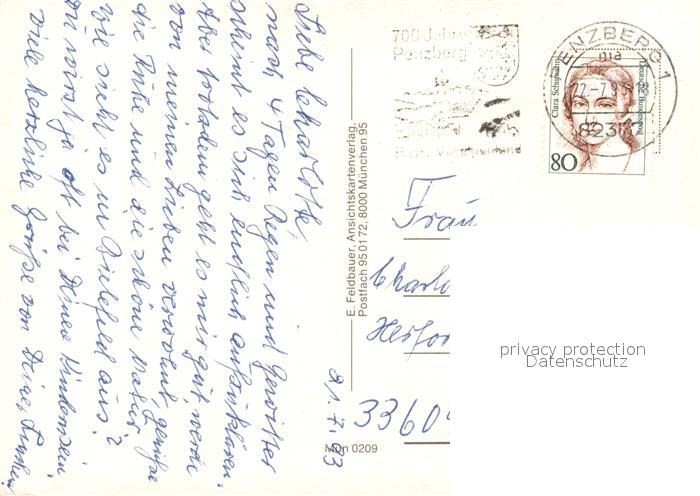 Liebe Charlotte,
nach 4 Tagen Regen und Gewitter
scheint es sich endlich aufzuklären.
Aber trotzdem geht es mir gut, werde
von meinen Lieben verwöhnt, genieße
die Ruhe und die schöne Natur.
Wie sieht es in Bielefeld aus?
Du wirst ja oft bei Deinen Kindern sein.
Viele herzliche Grüße von Deiner
21.7.93
E. Feldbauer, Ansichtskartenverlag,
Postfach 95 01 72, 8000 München 95
Mün 0209
700 Jahre
Penzberg
PENZBERG 1
22.-7.93
8237
Clara Schumann
Deutsche Bundespost
80
Frau
Charlo
Herfor
33604
privacy protection
Datenschutz